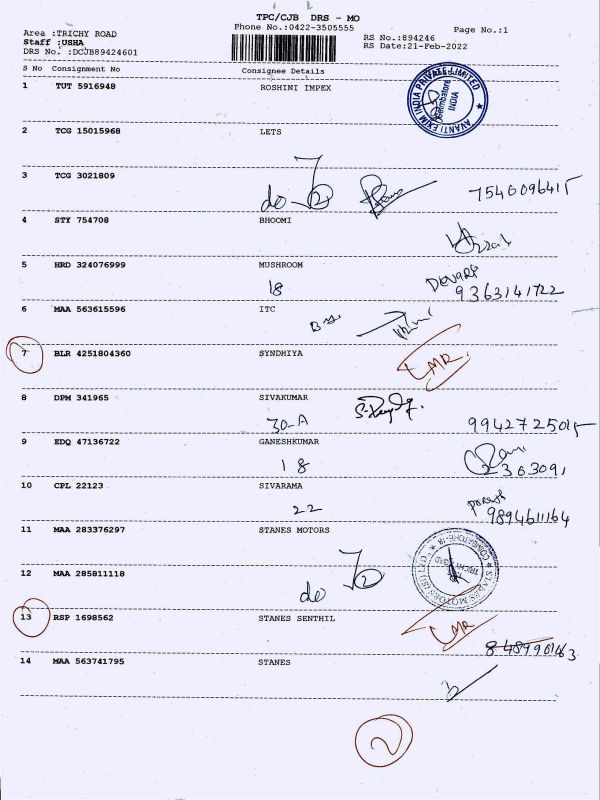 TPC/CJB DRS - MO
Phone No.:0422-3505555
Page No.:1
Area :TRICHY ROAD
Staff :USHA
DRS No. :DCJB89424601
RS No.:894246
RS Date:21-Feb-2022
S No Consignment No Consignee Details
1 TUT 5916948 ROSHINI IMPEX
AVANTI EXIM INDIA PRIVATE LIMITED
Coimbatore
INDIA
2 TCG 15015968 LETS
3 TCG 3021809
do
7540096415
4 STY 754708 BHOOMI
5 HRD 324076999 MUSHROOM
18
9363141722
6 MAA 563615596 ITC
7 BLR 4251804360 SYNDHIYA
MR
8 DPM 341965 SIVAKUMAR
30-A
9942725015
9 EDQ 47136722 GANESHKUMAR
18
2363091
10 CPL 22123 SIVARAMA
22
9894611164
11 MAA 283376297 STANES MOTORS
12 MAA 285811118
do
STANES MOTORS
TRICHY ROAD
13 RSP 1698562 STANES SENTHIL
MR
14 MAA 563741795 STANES
2